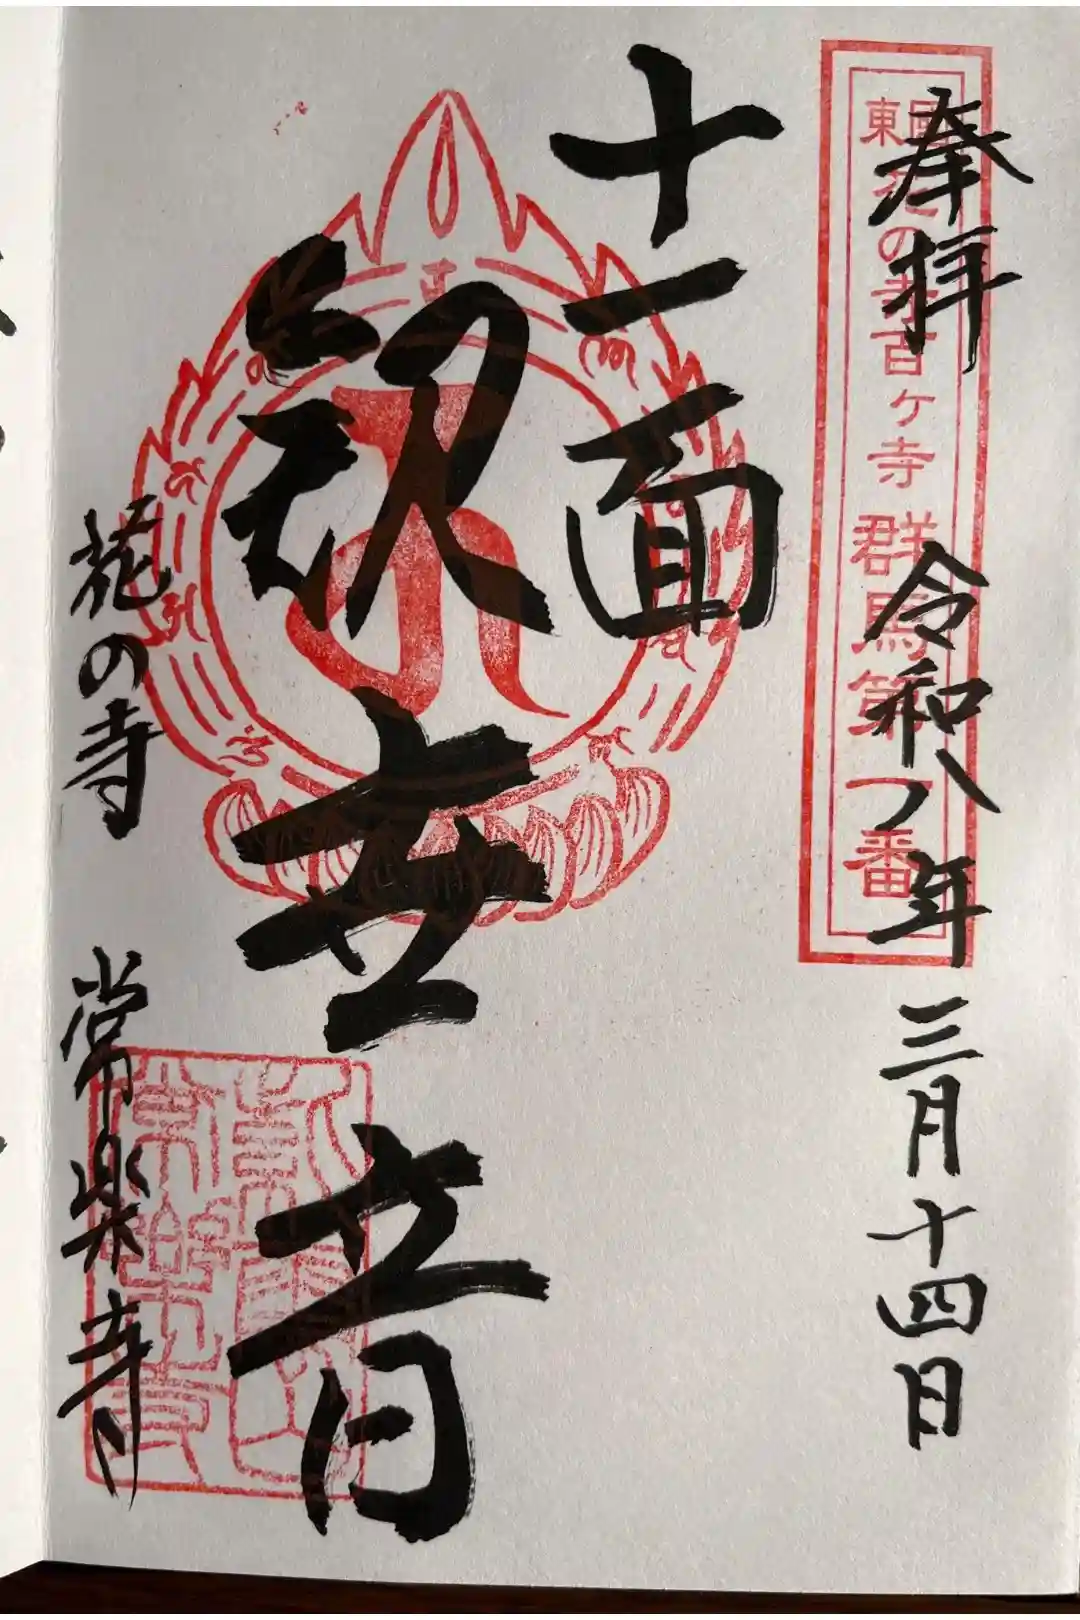 奉拝
令和八年三月十四日
東国花の寺百ヶ寺 群馬第一番
十一面
観世音
花の寺
常楽寺